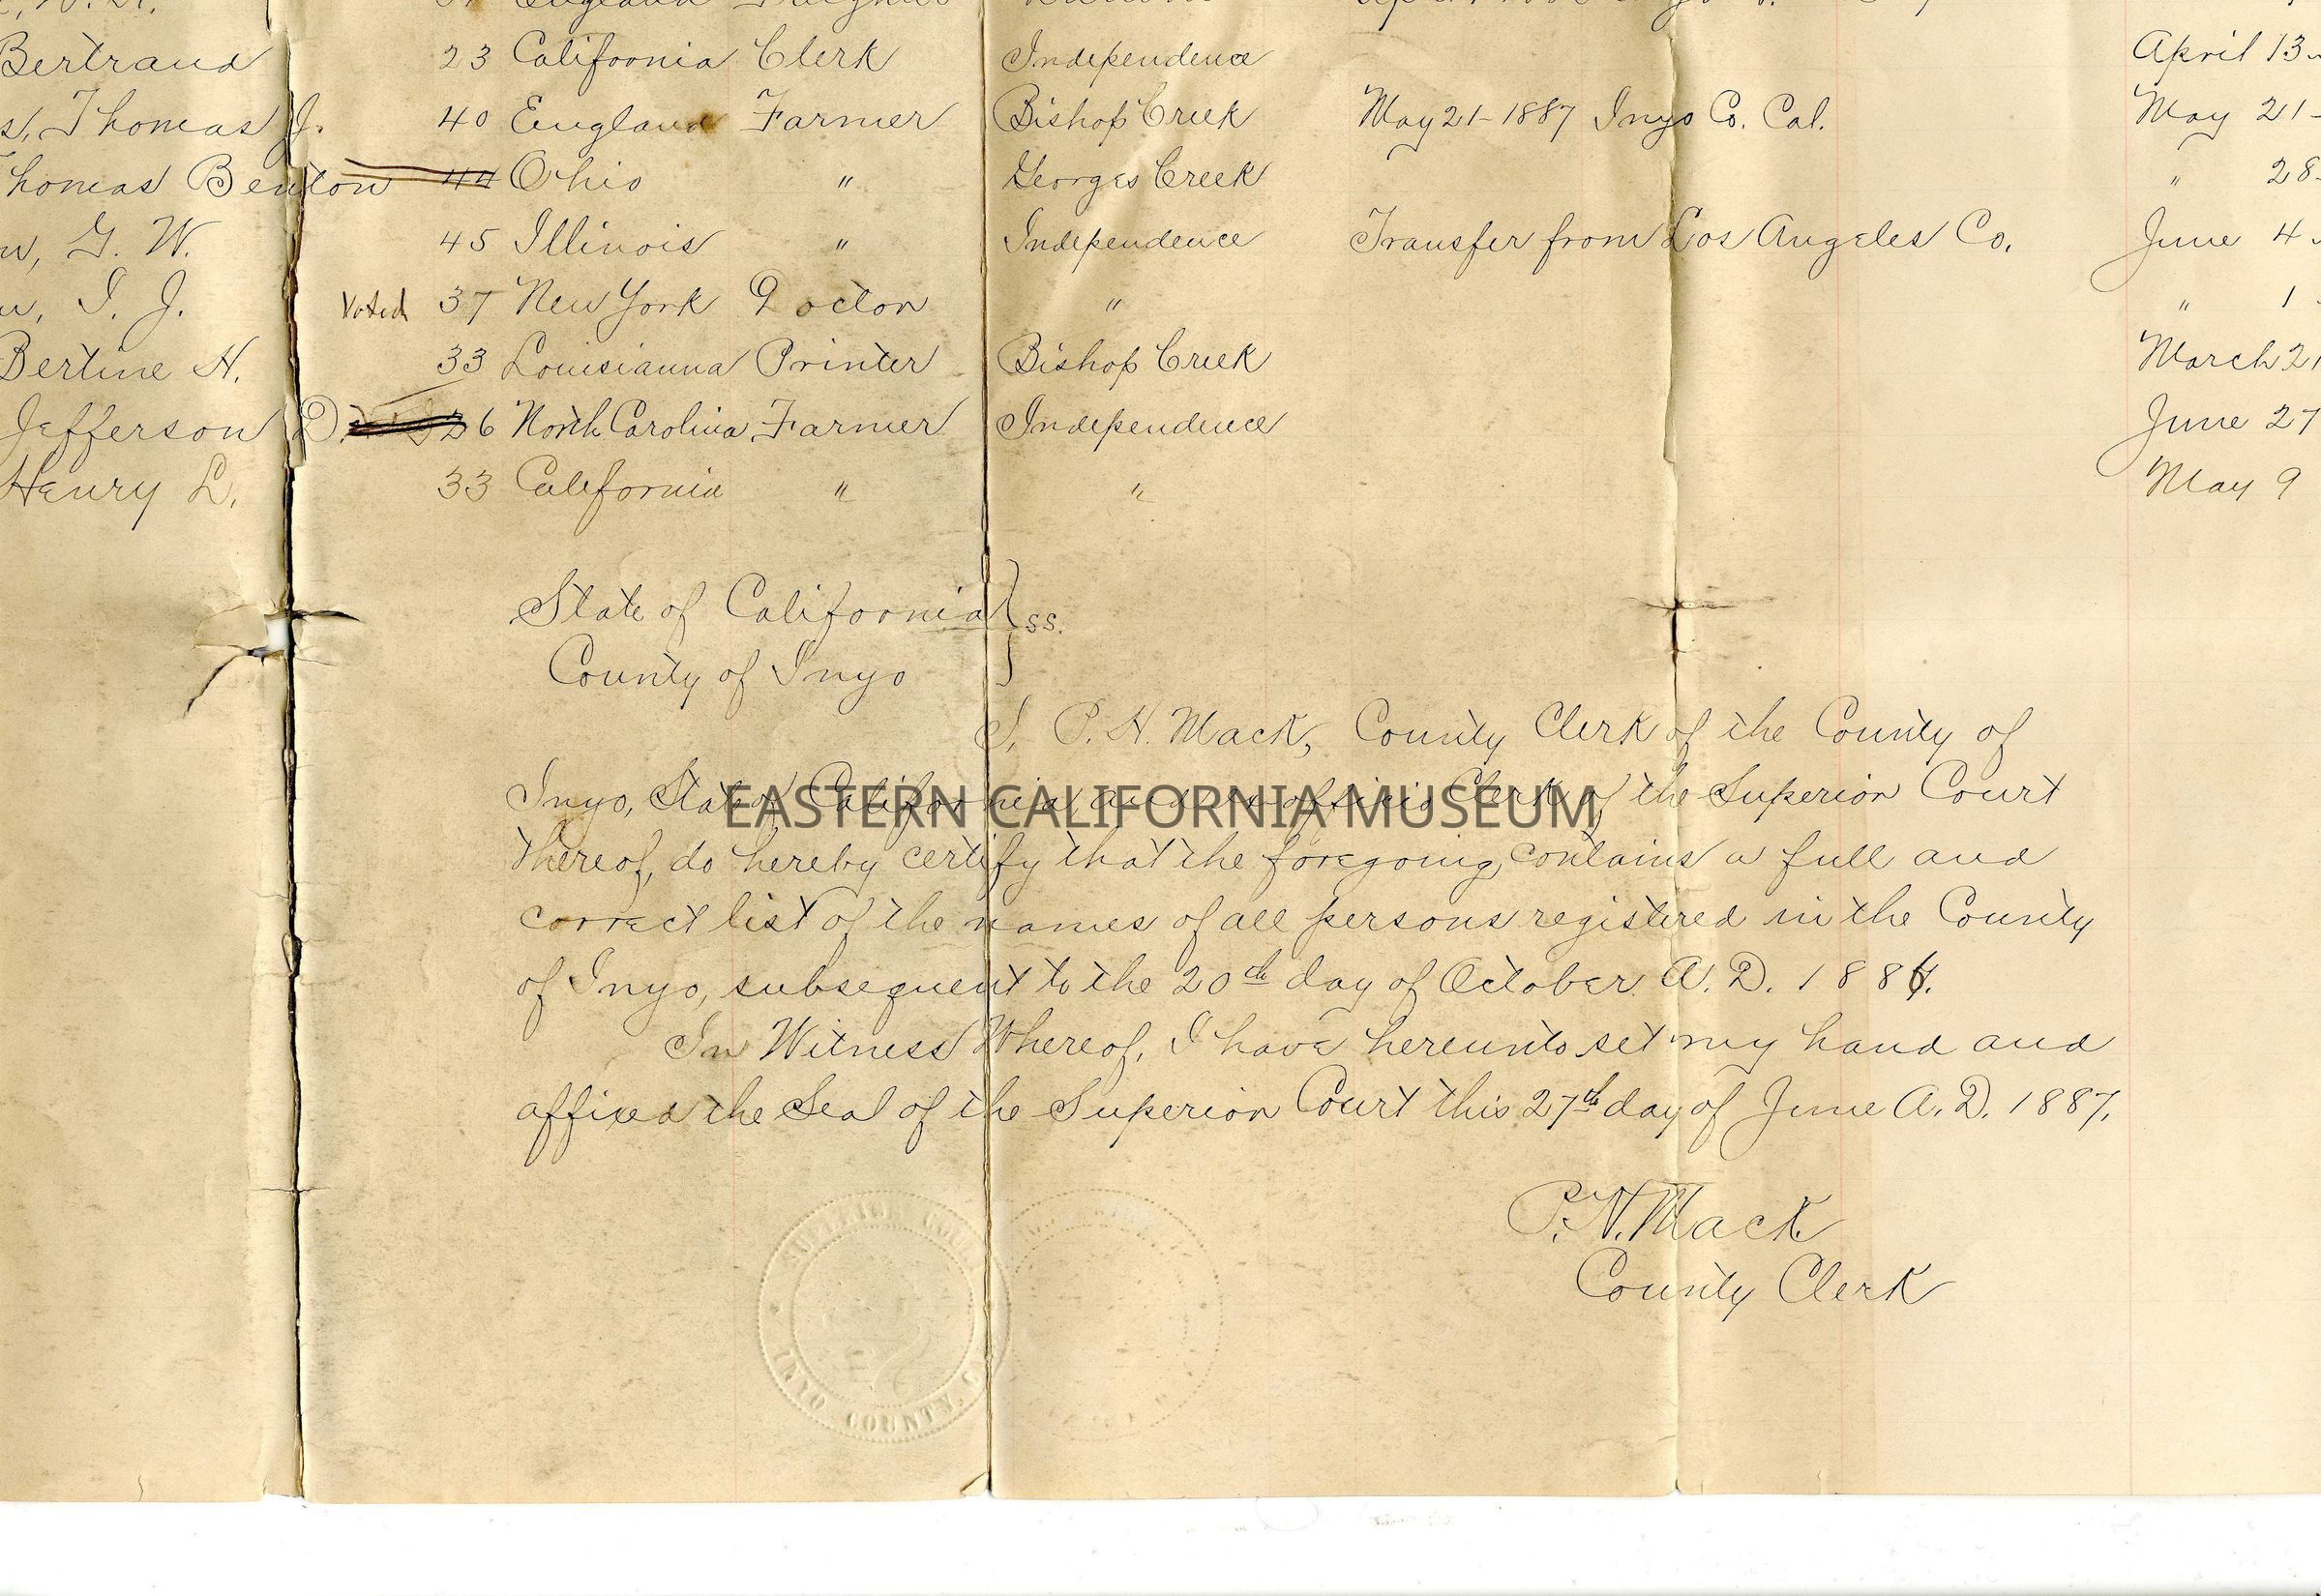 Bertrand 23 California Clerk Independence April 13
s, Thomas J. 40 England Farmer Bishop Creek May 21-1887 Inyo Co. Cal. May 21
homas Benton 44 Ohio " Georges Creek " 28
w, G. W. 45 Illinois " Independence Transfer from Los Angeles Co. June 4
w, I. J. Voted 37 New York Doctor " " 1
Bertine H. 33 Louisianna Printer Bishop Creek March 21
Jefferson D. 26 North Carolina Farmer Independence June 27
Henry L. 33 California " " May 9
State of California } ss.
County of Inyo
I, P. H. Mack, County Clerk of the County of
Inyo, State of California, and ex-officio Clerk of the Superior Court
EASTERN CALIFORNIA MUSEUM
thereof, do hereby certify that the foregoing, contains a full and
correct list of the names of all persons registered in the County
of Inyo, subsequent to the 20th day of October A. D. 1886.
In Witness Whereof, I have hereunto set my hand and
affixed the Seal of the Superior Court this 27th day of June A. D. 1887.
P. H. Mack
County Clerk
SUPERIOR COURT
INYO COUNTY, C